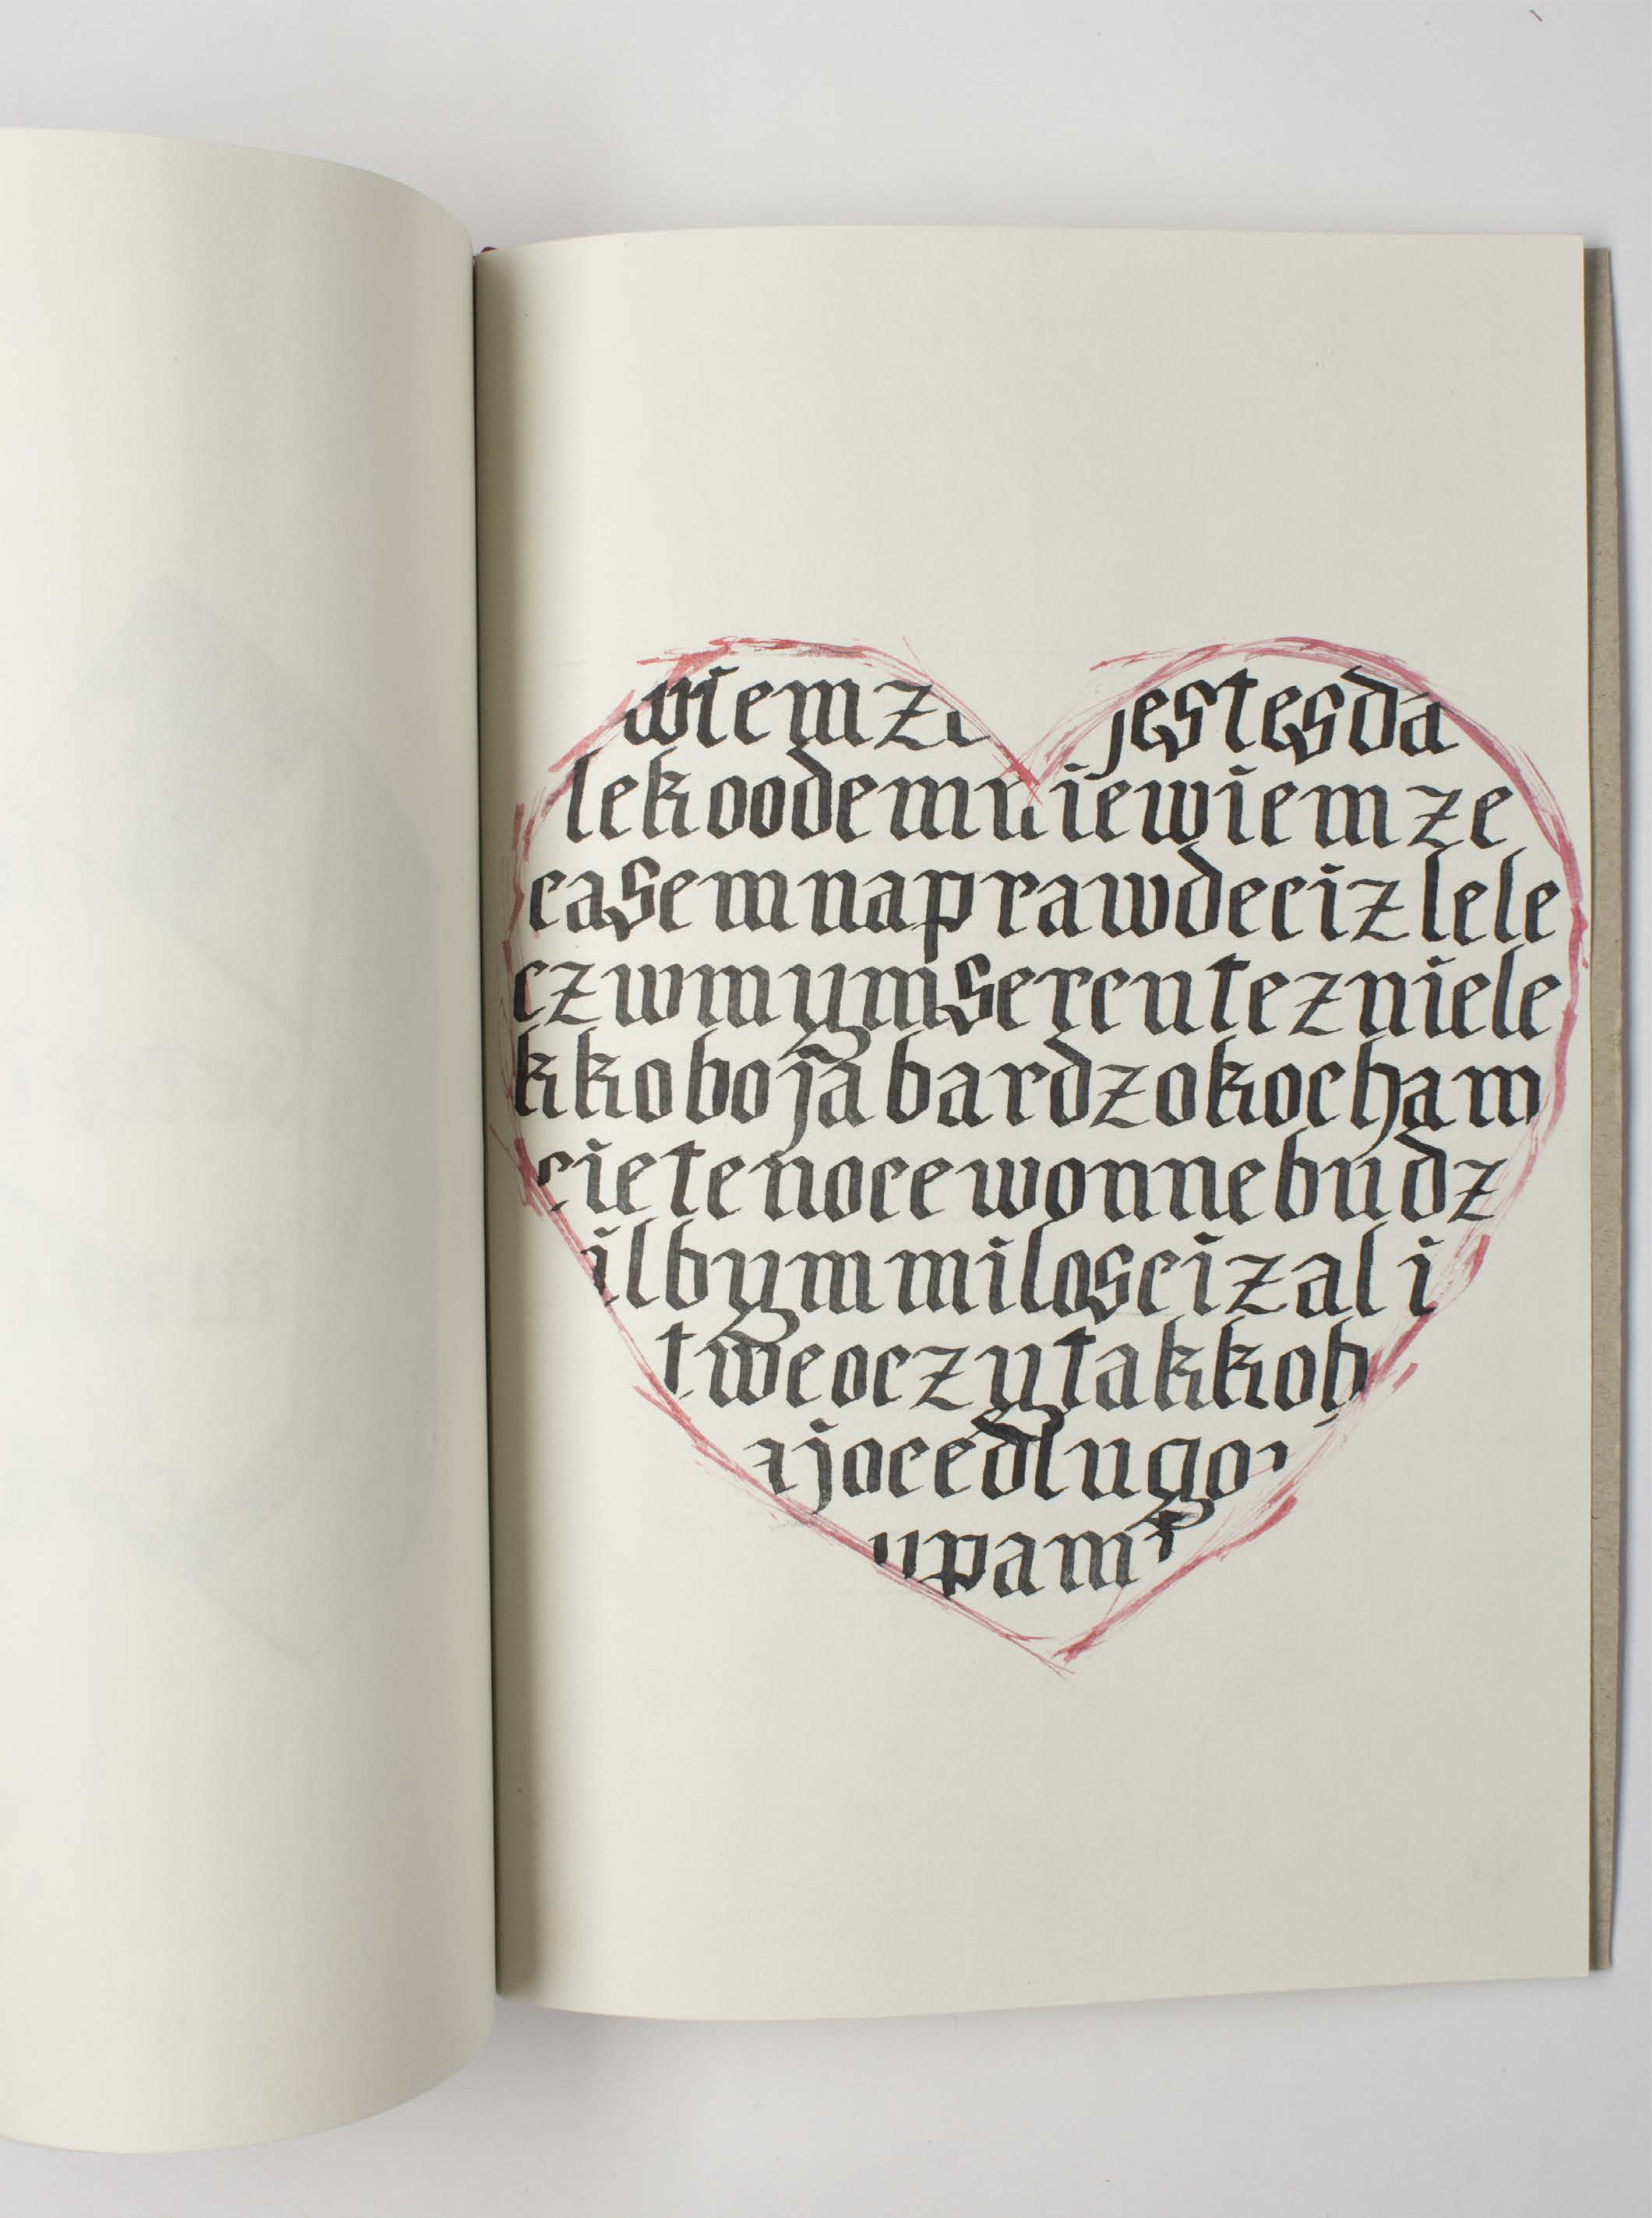 wiemze jestesda
lekoodemniewiemze
casemnaprawdecizlele
czwmymsercutezniele
kkobojabardzokocham
cietenocewonnebudz
ilbymmiloscizali
tweoczytakkoh
ajocedlugo
upam